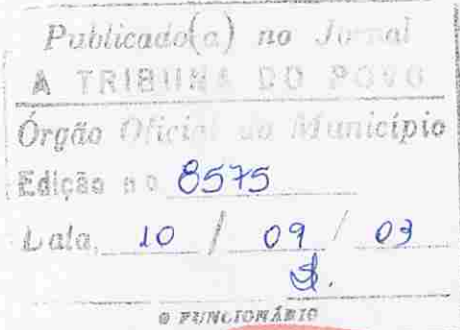 Publicado(a) no Jornal
A TRIBUNA DO POVO
Órgão Oficial do Município
Edição nº 8575
Data, 10 / 09 / 03
O FUNCIONÁRIO